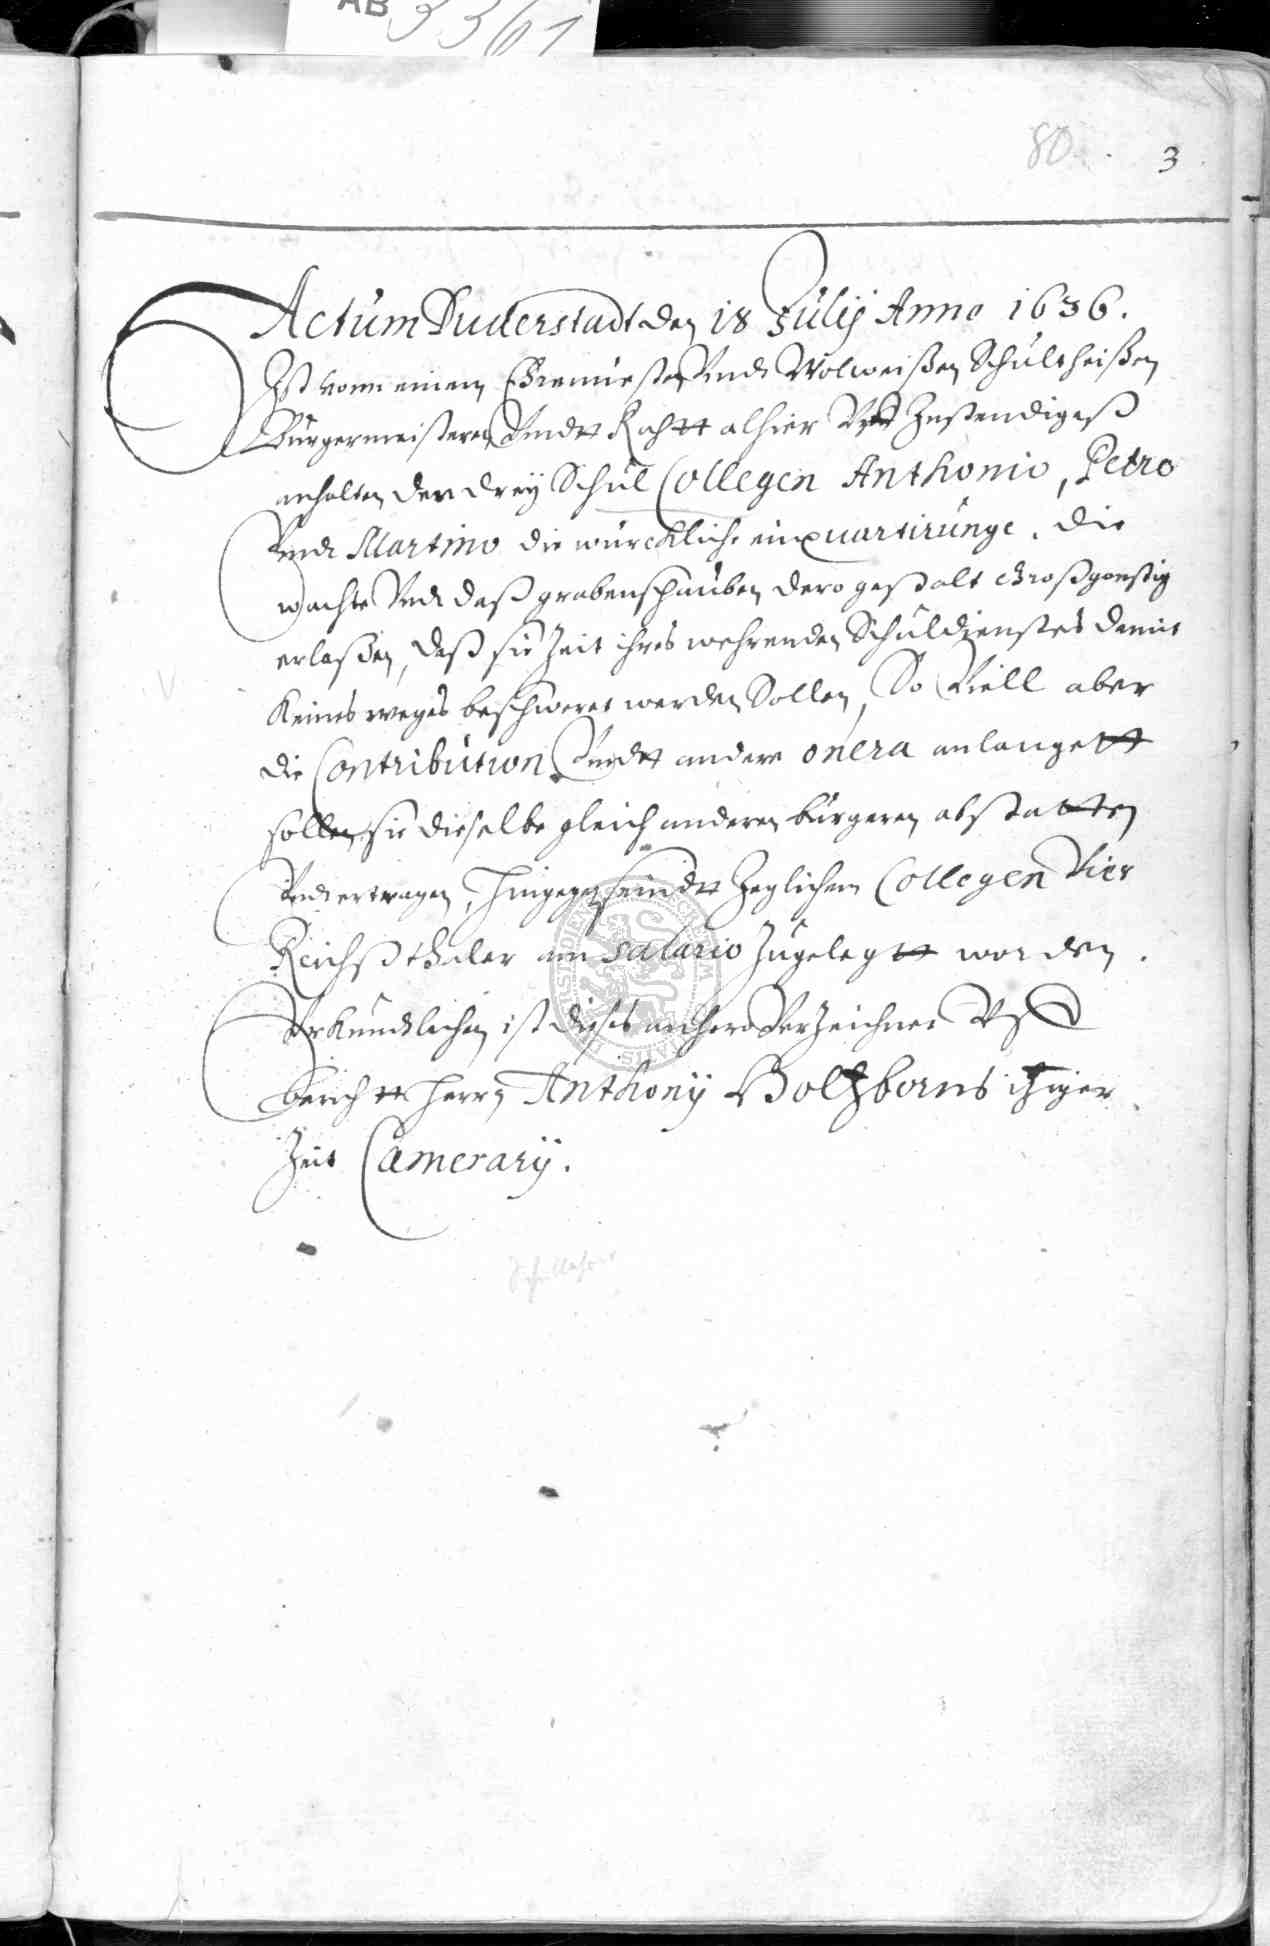 AB 3361
80. 3
Actum Duderstadt den 18 Julij Anno 1636.
Ist vonn einem Ehrnuesten Vndt Wolweißen Schultheißen
Bürgermeisteren Vndtt Rahtt alhier Vff Instendigeß
anhalten der drey Schul Collegen Anthonio, Petro
Vndt Martino die würckliche einquartirunge, die
wachte Vndt daß grabenschauben dero gestalt großgonstig
erlaßen, daß sie Zeit ihres wehrenden Schuldienstes damit
Keines weges beschweret werden Sollen, So Viell aber
die Contribution Vndtt andere onera anlangett
sollen sie dieselbe gleich anderen bürgeren abstatten
Vndt ertragen, Hingegen seindtt Jeglichem Collegen Vier
Reichßthaler am Salario Zugelegtt worden.
Vrkundlichen ist dieses anhero Verzeichnet Vff
bericht Herrn Anthonij Boltzborns itziger
Zeit Camerarij.